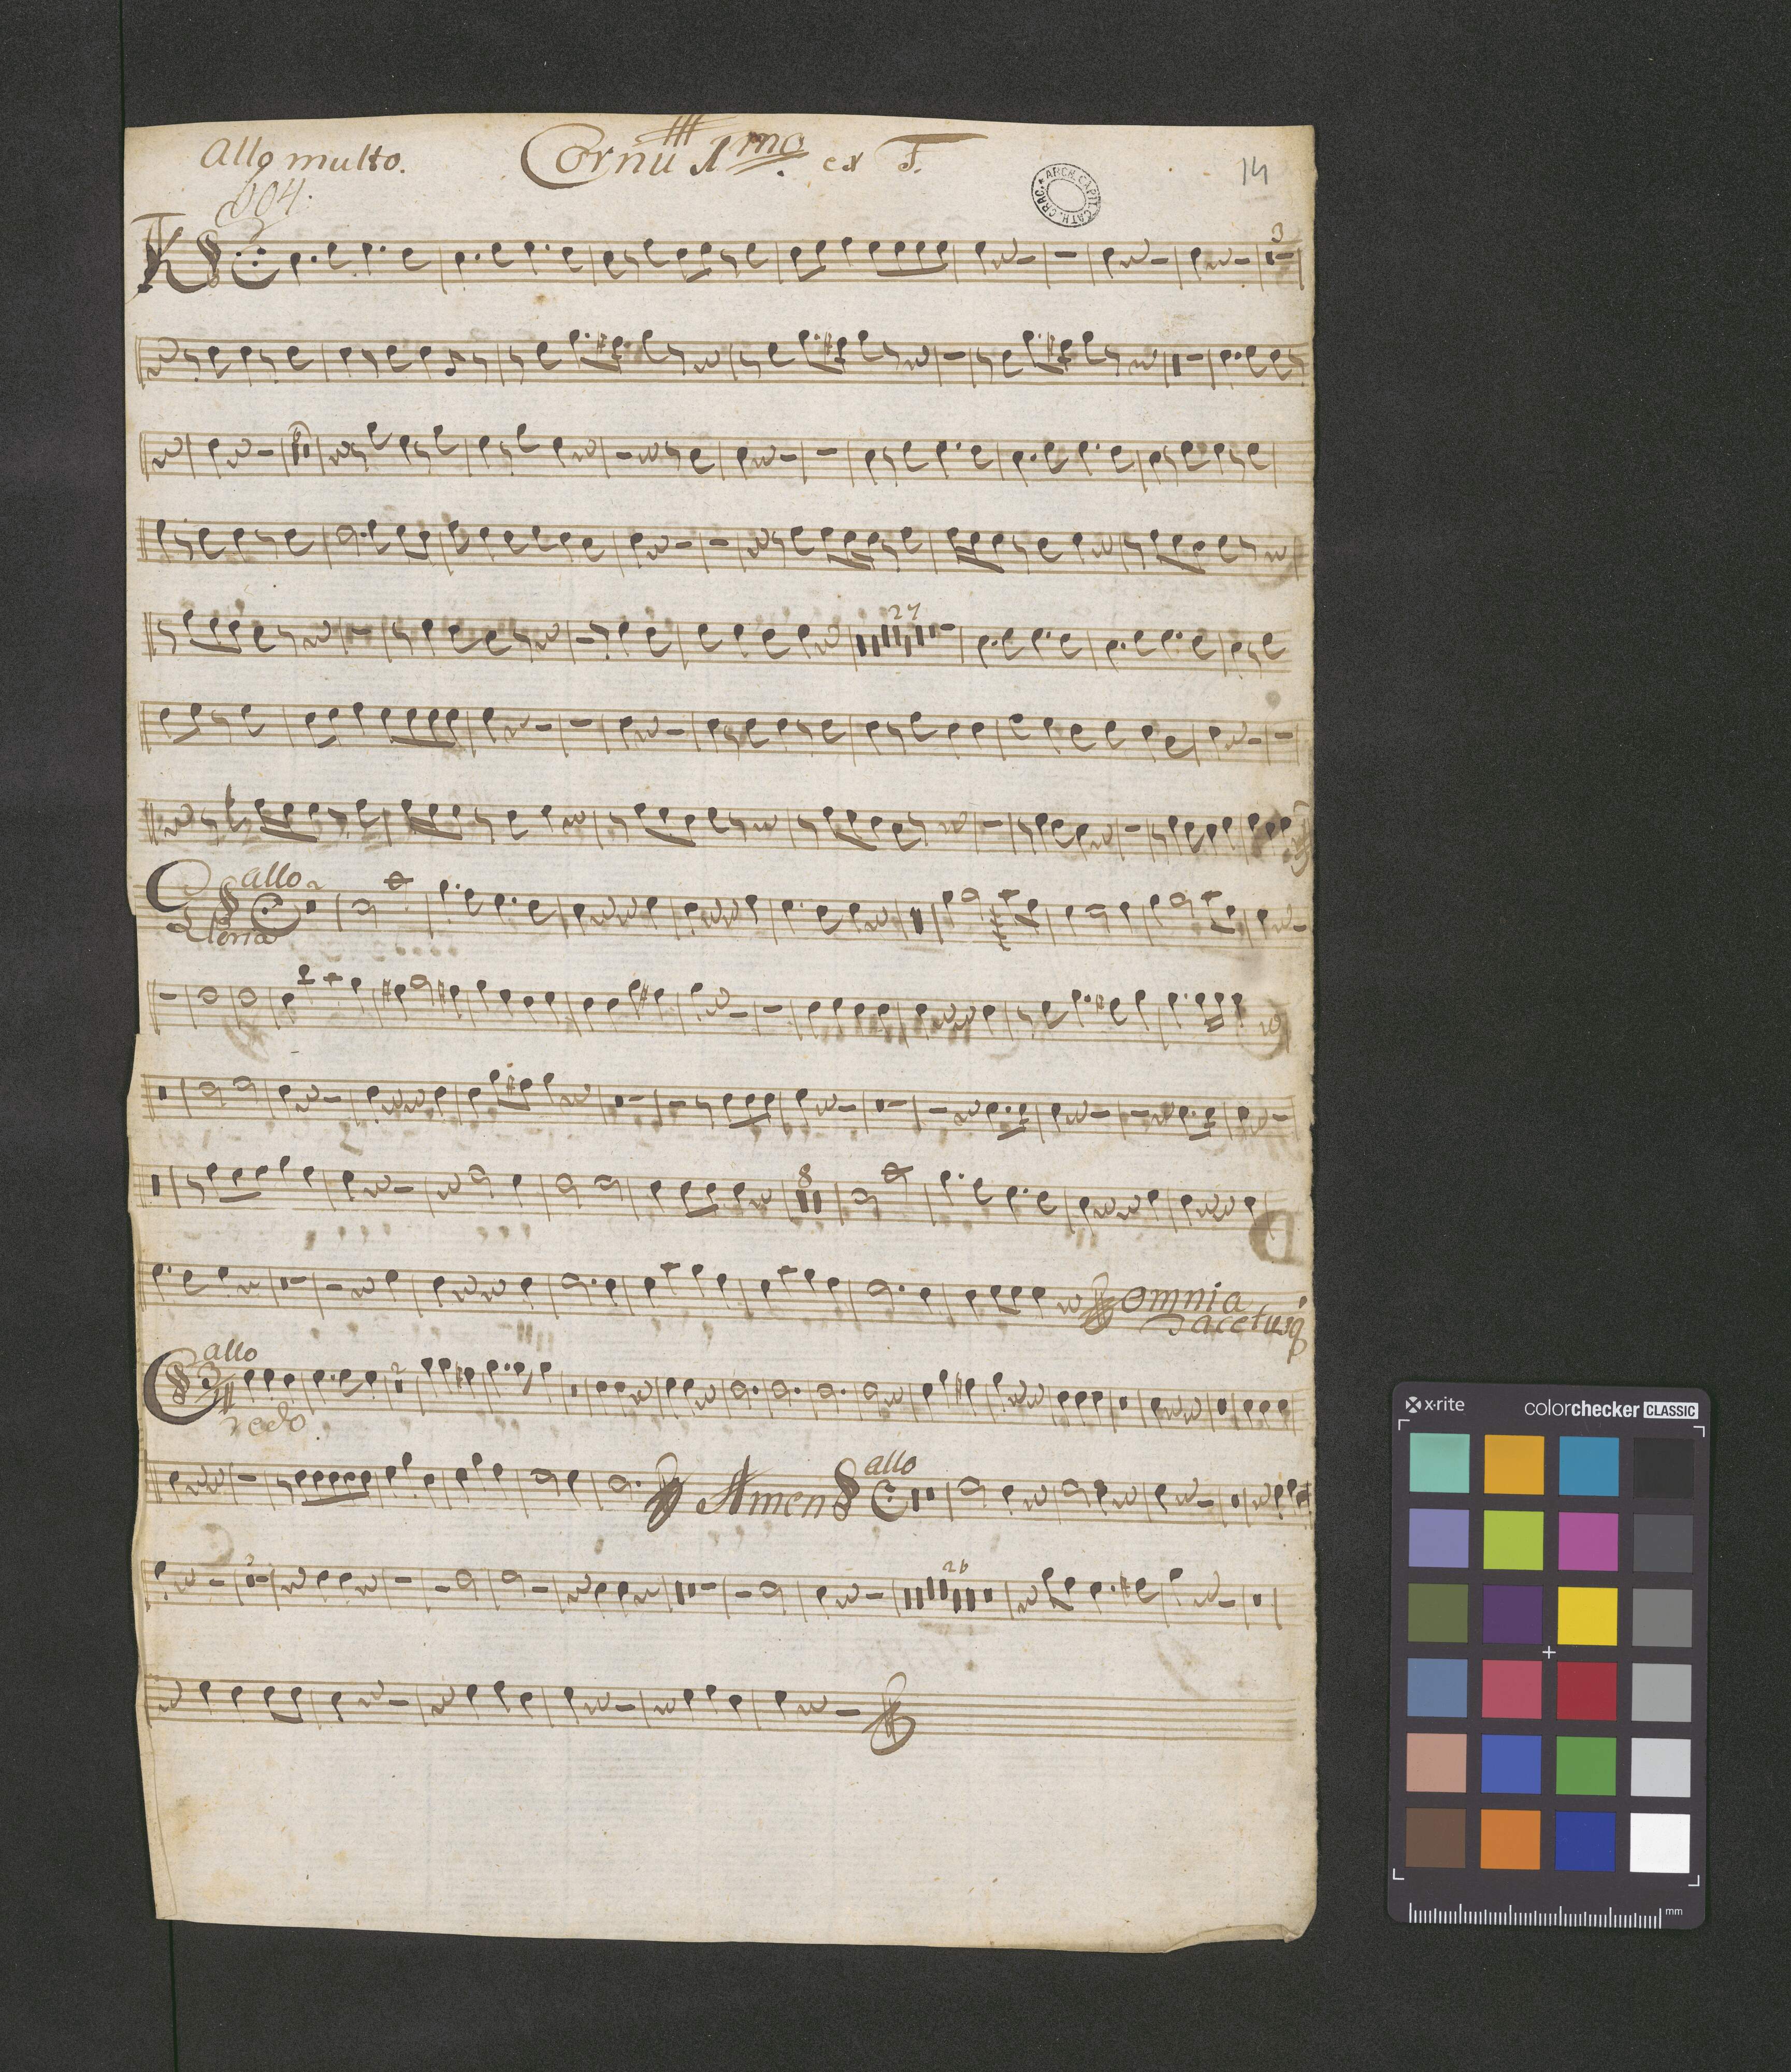 Allo multo. Cornu 1mo. ex F.
14
ARCH. CAPIT. CATH. CRAC.
K
3
27
allo
2
Gloria
8
omnia
Tacetusq
allo
3
2
Credo.
Amen allo
3
26
x-rite colorchecker CLASSIC
mm